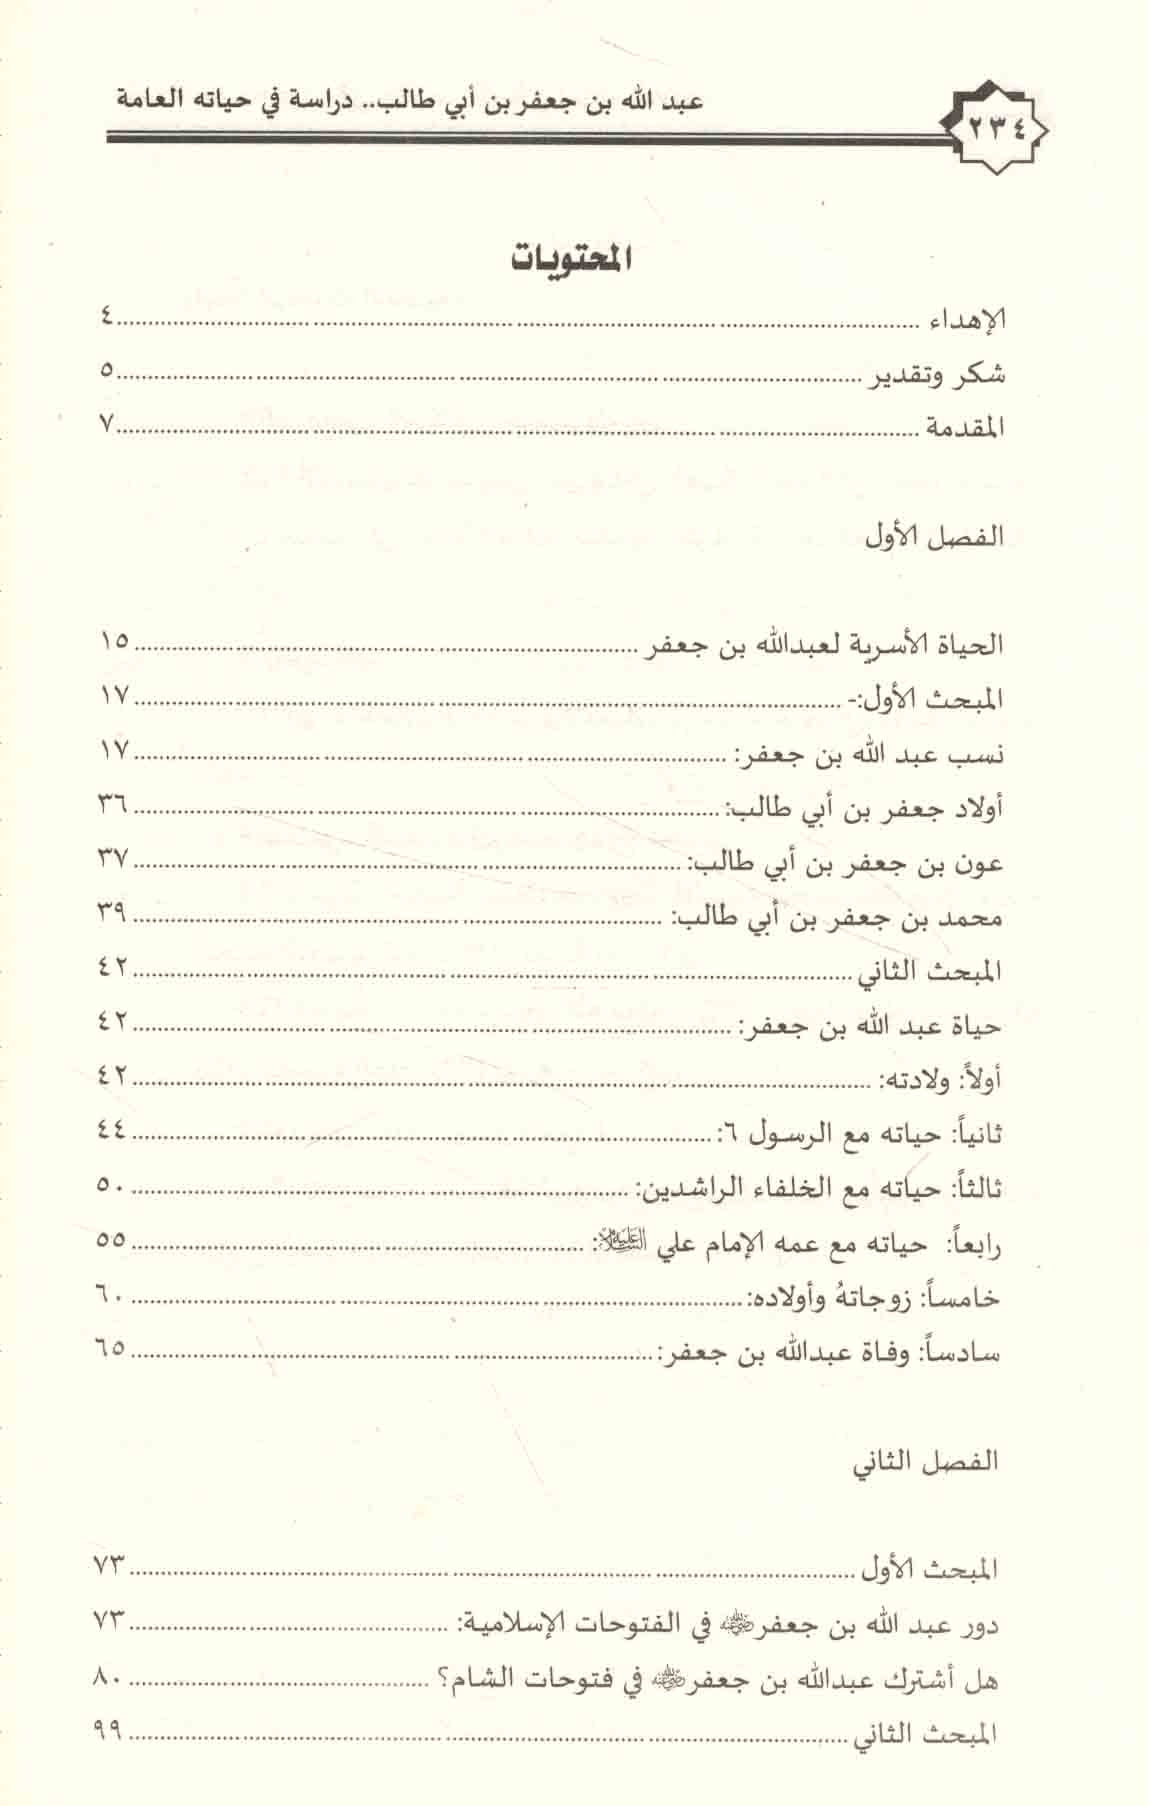 ٢٣٤
عبد الله بن جعفر بن أبي طالب.. دراسة في حياته العامة
المحتويات
الإهداء ........ ٤
شكر وتقدير ........ ٥
المقدمة ........ ٧
الفصل الأول
الحياة الأسرية لعبدالله بن جعفر ........ ١٥
المبحث الأول:- ........ ١٧
نسب عبد الله بن جعفر: ........ ١٧
أولاد جعفر بن أبي طالب: ........ ٣٦
عون بن جعفر بن أبي طالب: ........ ٣٧
محمد بن جعفر بن أبي طالب: ........ ٣٩
المبحث الثاني ........ ٤٢
حياة عبد الله بن جعفر: ........ ٤٢
أولاً: ولادته: ........ ٤٢
ثانياً: حياته مع الرسول ٦: ........ ٤٤
ثالثاً: حياته مع الخلفاء الراشدين: ........ ٥٠
رابعاً: حياته مع عمه الإمام علي عليه السلام: ........ ٥٥
خامساً: زوجاتهُ وأولاده: ........ ٦٠
سادساً: وفاة عبدالله بن جعفر: ........ ٦٥
الفصل الثاني
المبحث الأول ........ ٧٣
دور عبد الله بن جعفر رضي الله عنه في الفتوحات الإسلامية: ........ ٧٣
هل أشترك عبدالله بن جعفر رضي الله عنه في فتوحات الشام؟ ........ ٨٠
المبحث الثاني ........ ٩٩